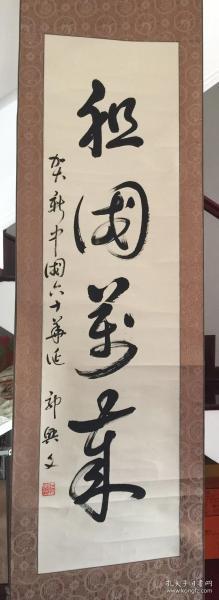 祖國萬歲
賀新中國六十華诞
郭興文
孔夫子旧书网